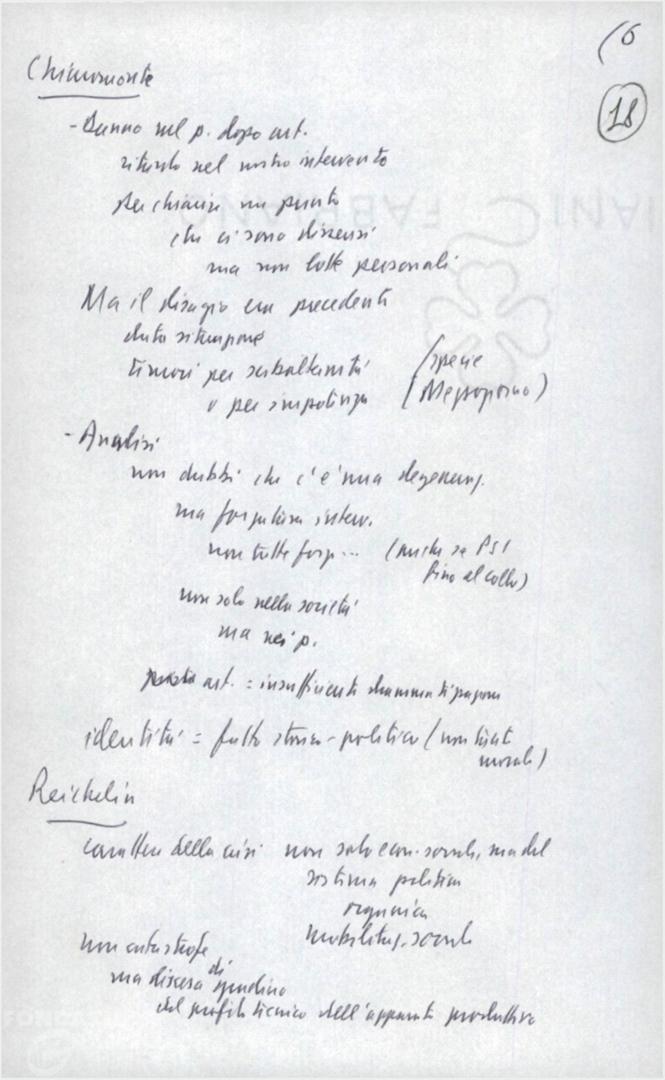 16
18
Chiaromonte
- Danno nel p. dopo art.
ritardo nel nostro intervento
per chiarire un punto
che ci sono dissensi
ma non lotte personali
Ma il disagio era precedente
timori per subalternità (specie
o per impotenza Mezzogiorno)
- Analisi
non dubbi che c'è una degeneraz.
ma
non tutte forze ... (anche se PSI
fino al collo)
non solo nella società
ma nei p.
art. = insufficiente
identità = fatto storico-politico (non
morale)
Reichlin
carattere della crisi non solo econ. sociale, ma del
sistema politico
organica
non catastrofe mobilitaz. sociale
ma discesa di gradino
del profilo tecnico dell'apparato produttivo
FABRIANO